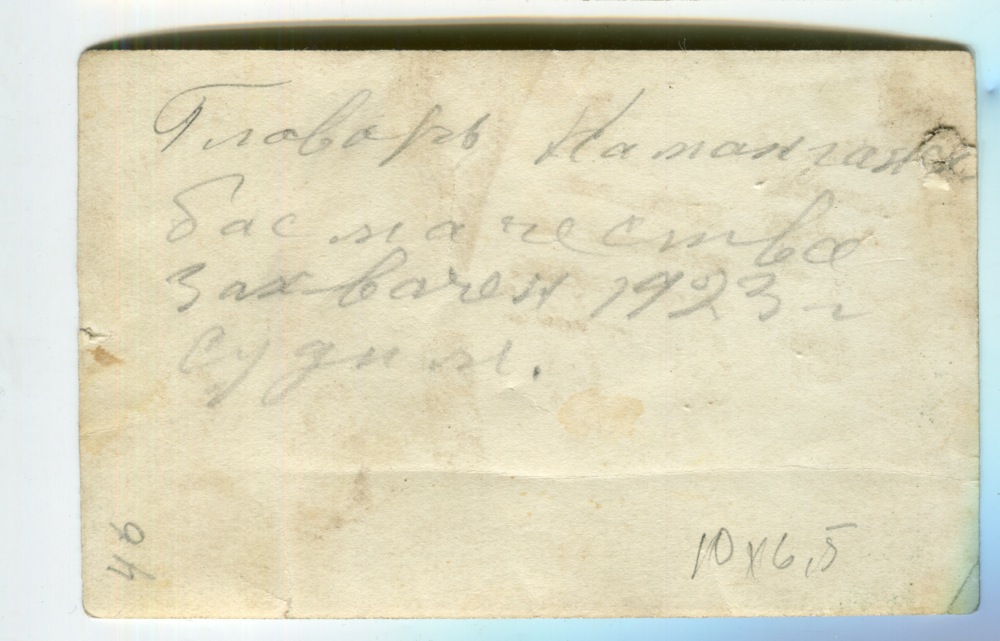 Главарь Наманган
басмачества
захвачен 1923 г
судим.
46
10х6,5